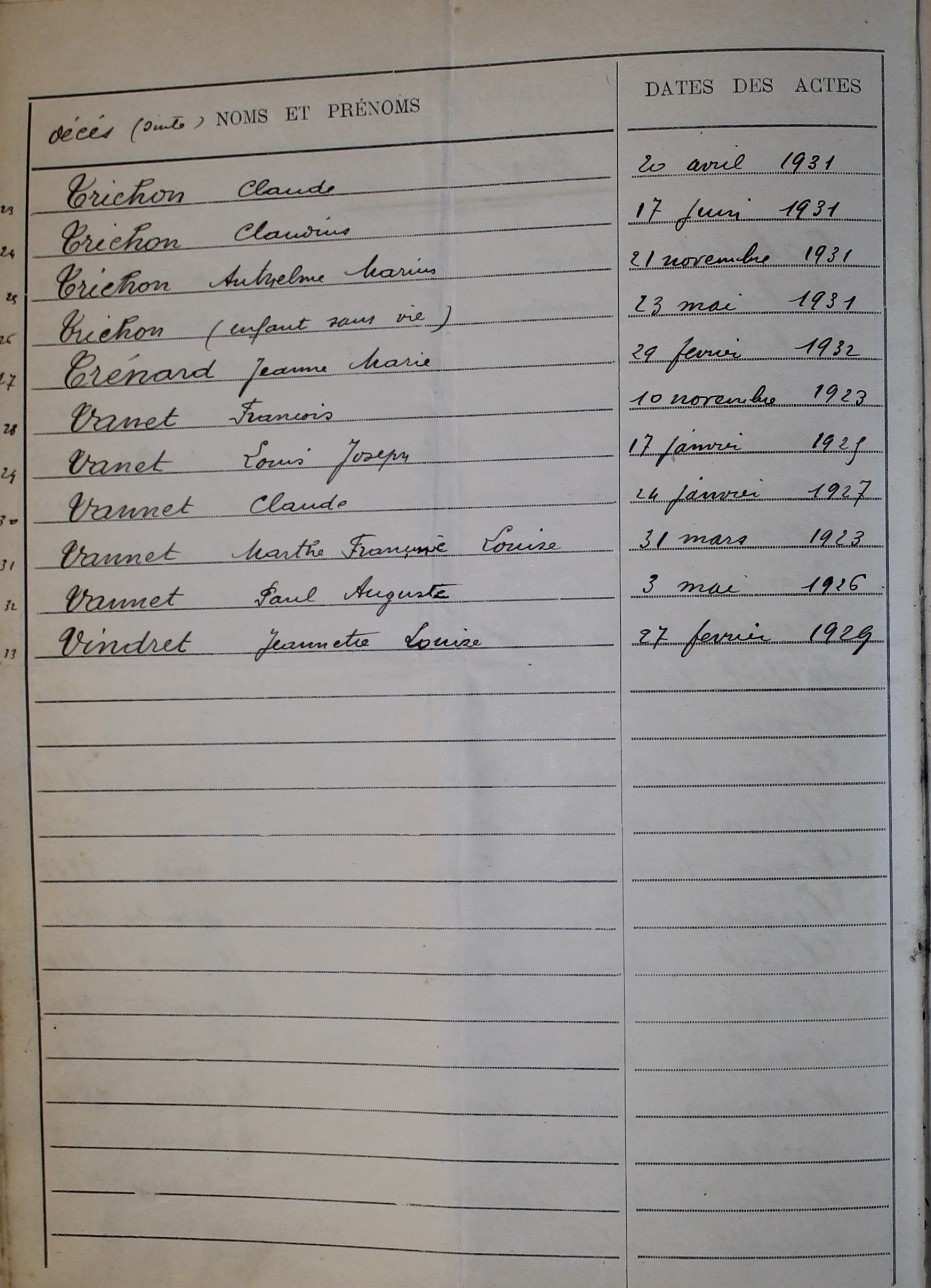 décés (suite) NOMS ET PRÉNOMS DATES DES ACTES
23 Trichon Claude 20 avril 1931
24 Trichon Claudius 17 juin 1931
25 Trichon Anthelme Marius 21 novembre 1931
26 Trichon (enfant sans vie) 23 mai 1931
27 Trénard Jeanne Marie 29 fevrier 1932
28 Vanet Francois 10 novembre 1923
29 Vanet Louis Joseph 17 janvier 1925
30 Vannet Claude 24 janvier 1927
31 Vannet Marthe Louise 31 mars 1923
32 Vannet Paul Auguste 3 mai 1926
33 Vindret Jeannette Louise 27 fevrier 1929